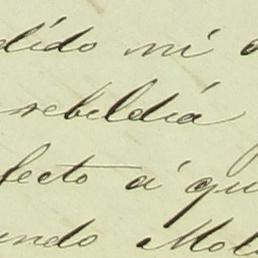 dido ni
rebeldia
fecto á qu
undo Mol